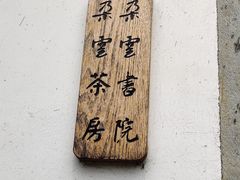 朵雲書院
朵雲茶房